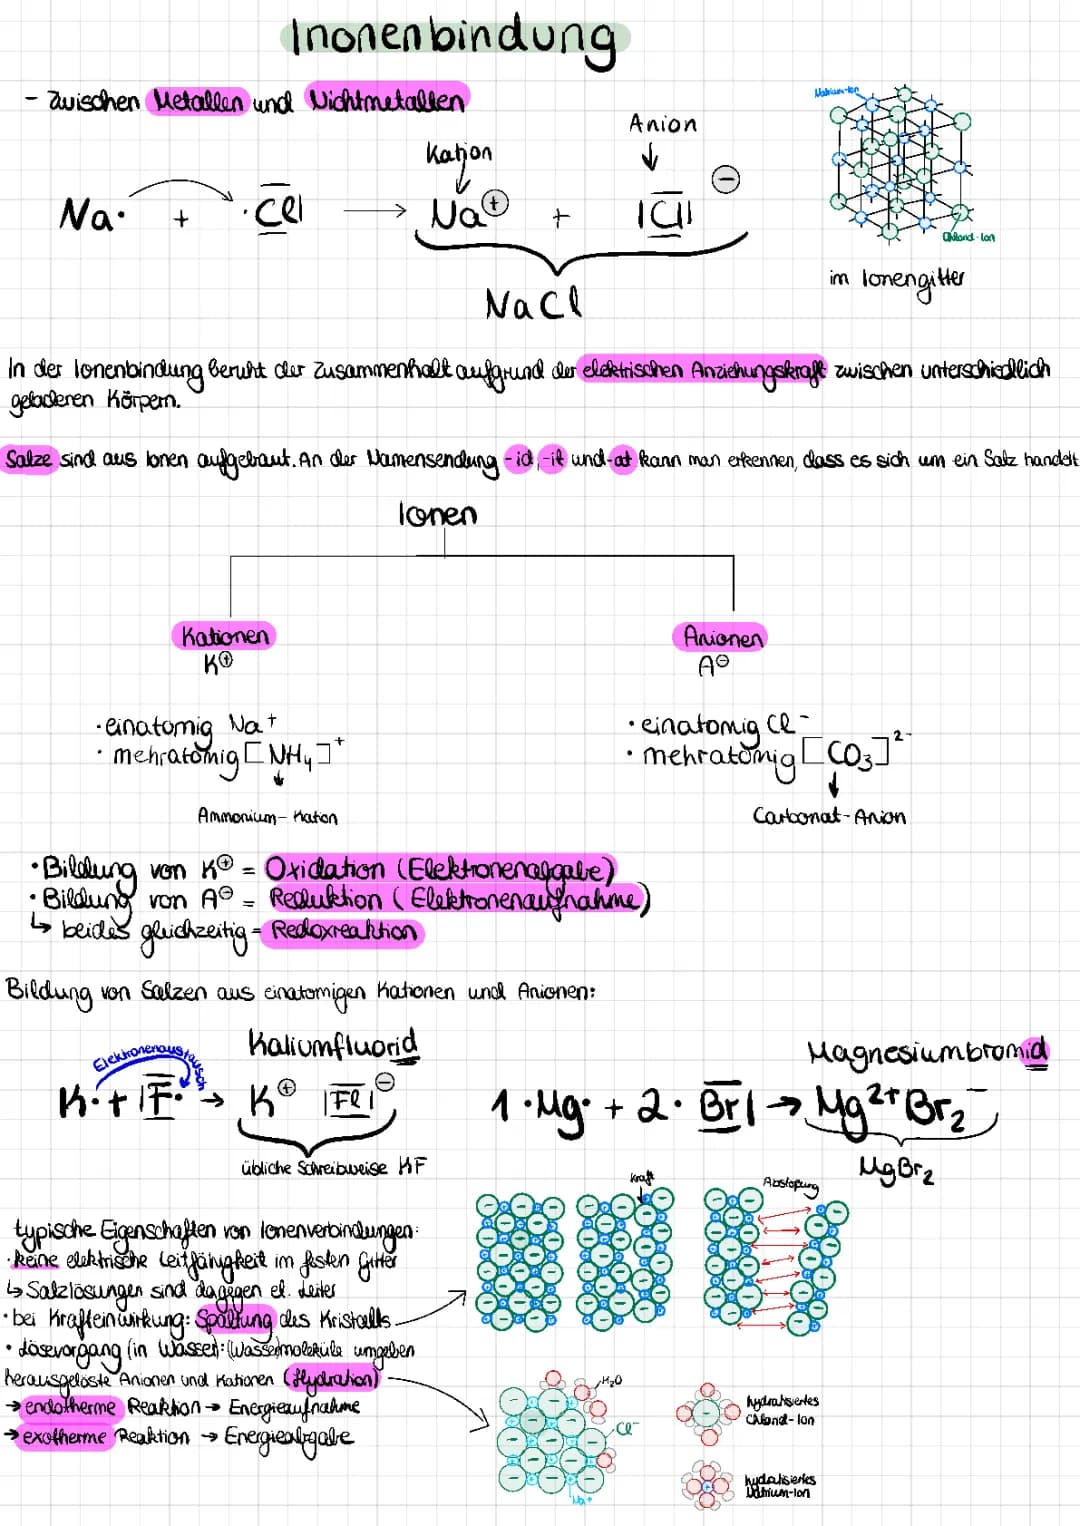 Inonenbindung
- Zwischen Metallen und Nichtmetallen
Natrium-Ion
Anion
Kation
Na· + ·Cl| → Na⊕ + |Cl| ⊖
Chlorid-Ion
NaCl
im Ionengitter
In der Ionenbindung beruht der Zusammenhalt aufgrund der elektrischen Anziehungskraft zwischen unterschiedlich
geladenen Körpern.
Salze sind aus Ionen aufgebaut. An der Namensendung -id, -it und -at kann man erkennen, dass es sich um ein Salz handelt
Ionen
Kationen
K⊕
Anionen
A⊖
· einatomig Na+
· mehratomig [NH4]+
Ammonium-Kation
· einatomig Cl-
· mehratomig [CO3]2-
Carbonat-Anion
· Bildung von K⊕ = Oxidation (Elektronenabgabe)
· Bildung von A⊖ = Reduktion (Elektronenaufnahme)
↳ beides gleichzeitig = Redoxreaktion
Bildung von Salzen aus einatomigen Kationen und Anionen:
Elektronenaustausch
Kaliumfluorid
K· + |F· → K⊕ |Fl|⊖
übliche Schreibweise KF
Magnesiumbromid
1·Mg· + 2·Br| → Mg2+Br2-
MgBr2
typische Eigenschaften von Ionenverbindungen:
· keine elektrische Leitfähigkeit im festen Gitter
↳ Salzlösungen sind dagegen el. Leiter
· bei Krafteinwirkung: Spaltung des Kristalls
· Lösevorgang (in Wasser): (Wassermoleküle umgeben
herausgelöste Anionen und Kationen (Hydration)
→ endotherme Reaktion → Energieaufnahme
→ exotherme Reaktion → Energieabgabe
Kraft
Abstoßung
H2O
Cl-
Na+
hydratisiertes
Chlorid-Ion
hydratisiertes
Natrium-Ion